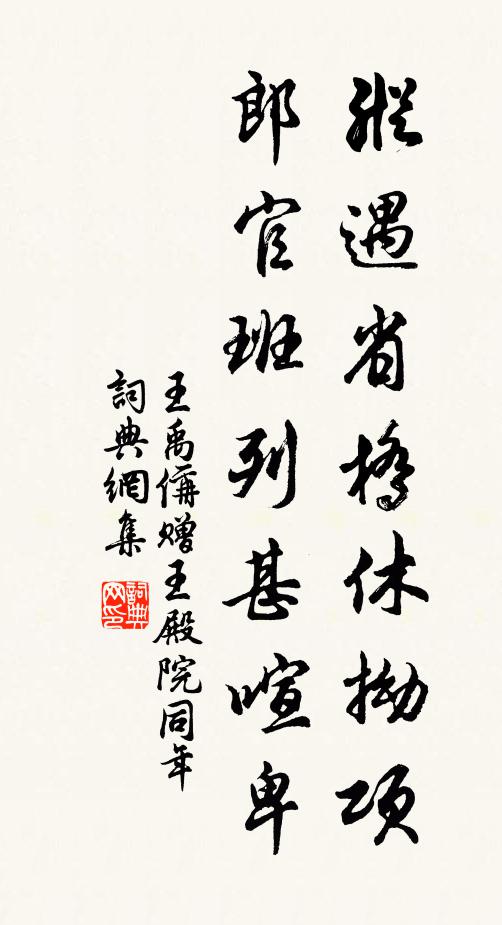 縱遇省橋休拗項
郎官班列甚喧卑
王禹偁贈王殿院同年
詞典網集
詞典网印